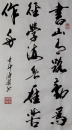 書山有路勤為
徑學海無崖苦
作舟